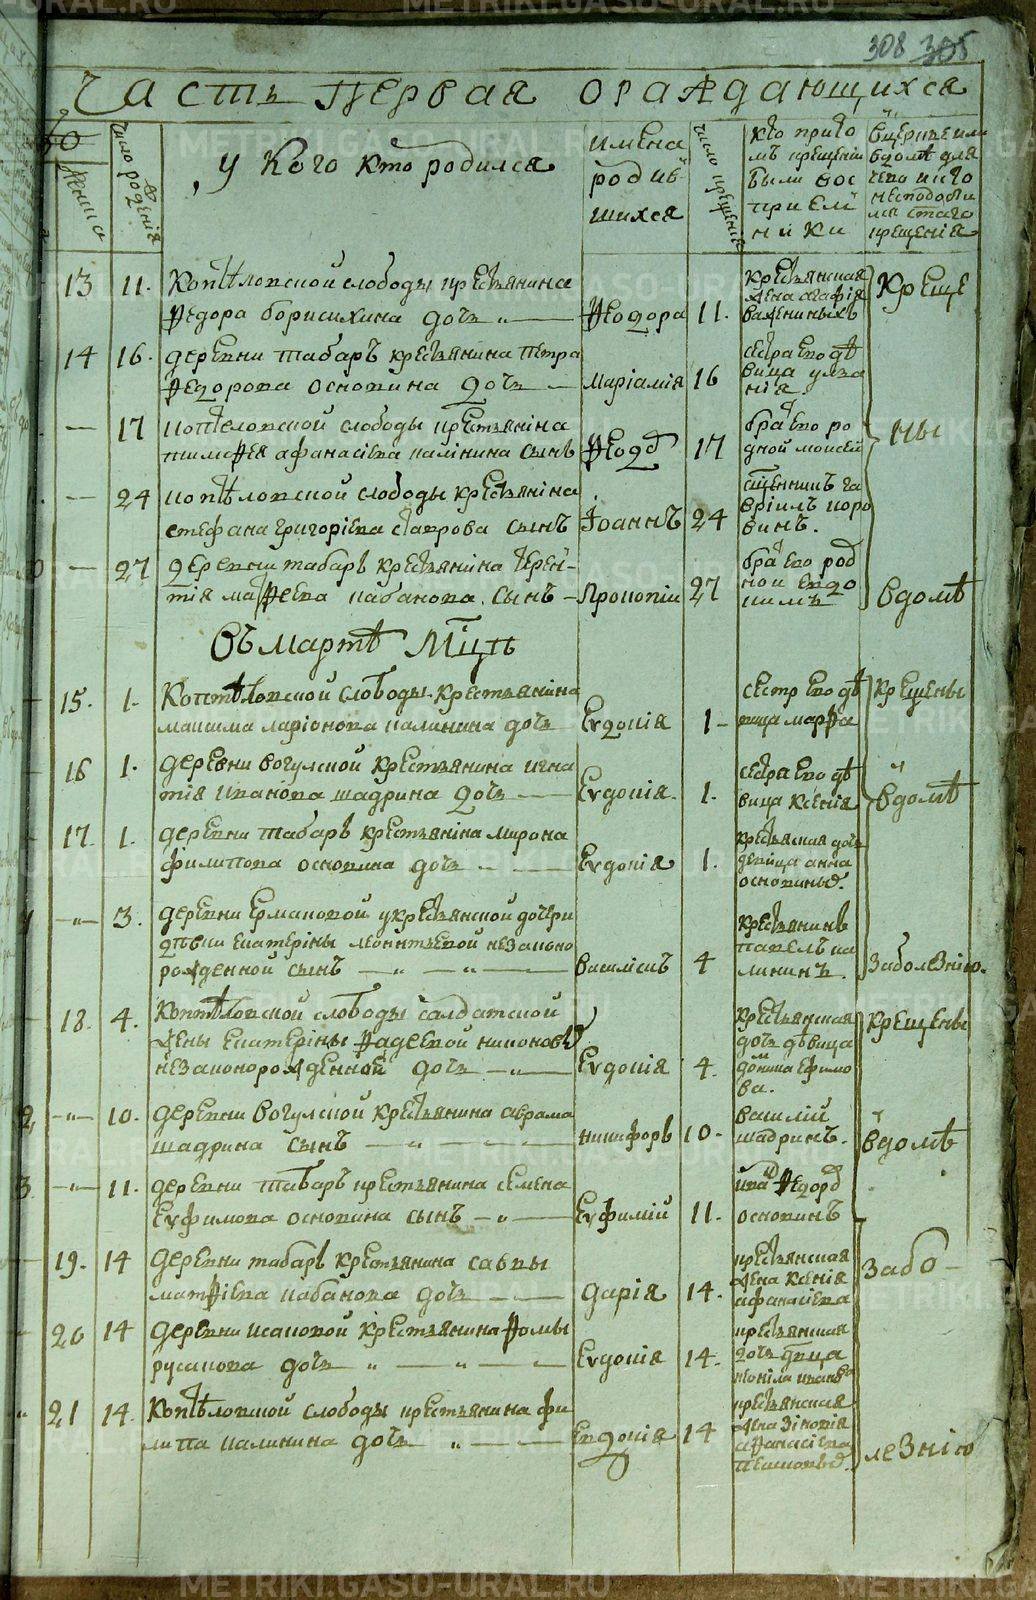 308 305
Часть первая ораждающихся
число рождения
у Кого кто родился
имена
родив
шихся
число крещения
кто прито
мъ крещении
были вос
приєм
ники
Вцеркве или
вдомѣ для
чево и кто
несподоби
лся стаго
крещения
13 11. Коптѣловской слободы крестьянина
Ѳедора борисихина дочь
Ѳеодора 11.
крестьянская
жена агафія
важениныхъ
Креще
14 16. деревни табаръ крестьянина петра
Ѳедорова осокина дочь
маріамія 16
сестра ево дѣ
вица улья
нія.
— 17 коптеловской слободы крестьянина
тимоѲея афанасіева калинина сынъ
Ѳеод 17
братъ ево ро
дной моисей
ны
— 24 коптѣловской слободы крестьянина
стефана григоріева ставрова сынъ
Іоаннъ 24
сщенникъ га
вріилъ коро
винъ.
— 27 деревни табаръ крестьянина терен-
тія маѲеева кабакова сынъ
Прокопіи 27
братъ ево род
ной евдо
кимъ
вдомѣ
Въ мартѣ мцѣ
15. 1. Коптѣловской слободы крестьянина
максима ларіонова калинина дочь
Евдокія 1
сестра ево дѣ
вица марѲа
крещены
16 1. деревни вогулской крестьянина игна
тія иванова шадрина дочь
Евдокія. 1.
сестра ево дѣ
вица ксенія
вдомѣ
17. 1. деревни табаръ крестьянина мирона
филипова осокина дочь
Евдокія 1.
крестьянская дочь
девица анна
осокиныхъ.
— 3. деревни Ермаковой укрестьянской дочери
девки екатерины леонтьевой незаконо
рожденной сынъ
василискъ 4
крестьянинъ
павелъ ка
лининъ.
Заболезнію.
18. 4. Коптѣловской слободы салдатской
жены екатерины Ѳадеевой никоновы
незаконорожденной дочь
Евдокія 4.
крестьянская
дочь дѣвица
домника ефимо
ва.
крещены
2, — 10. деревни вогулской крестьянина аврама
шадрина сынъ
никифоръ 10.
василій
шадринъ.
вдомѣ
3. — 11. деревни табаръ крестьянина семена
Евфимова осокина сынъ
Евфимій 11.
Ѳедоръ
осокинъ
19. 14 деревни табаръ крестьянина савы
матѲіева кабакова дочь
дарія 14.
крестьянская
жена ксенія
афанасіева
забо-
20 14 деревни исаковой крестьянина Ѳомы
русакова дочь
Евдокія 14.
крестьянская
дочь двица
21 14. Коптѣловской слободы крестьянина фи
липа калинина дочь
Евдокія 14
крестьянская
жена зіновія
аѲанасіева
лезнію
METRIKI.GASO-URAL.RU